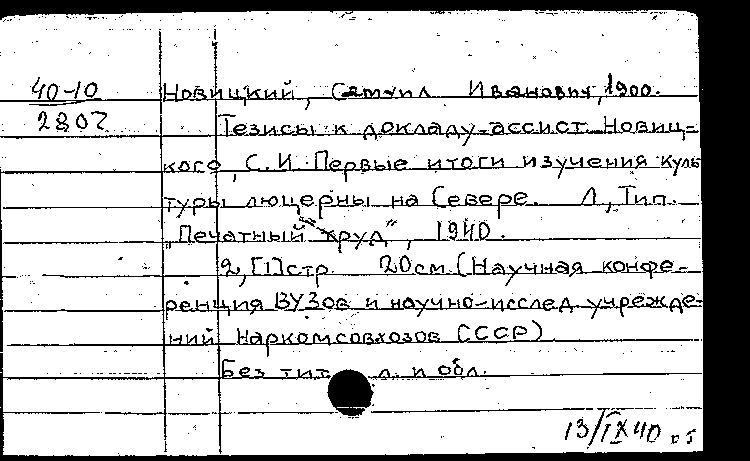 40-10
2807
Новицкий, Самуил Иванович, 1900.
Тезисы к докладу ассист. Новиц-
кого, С. И. Первые итоги изучения куль
туры люцерны на Севере. Л., Тип.
"Печатный труд", 1940.
2, [1] стр. 20 см. (Научная конфе-
ренция ВУЗов и научно-исслед. учрежде-
ний Наркомсовхозов СССР)
Без тит. л. и обл.
13/IX 40